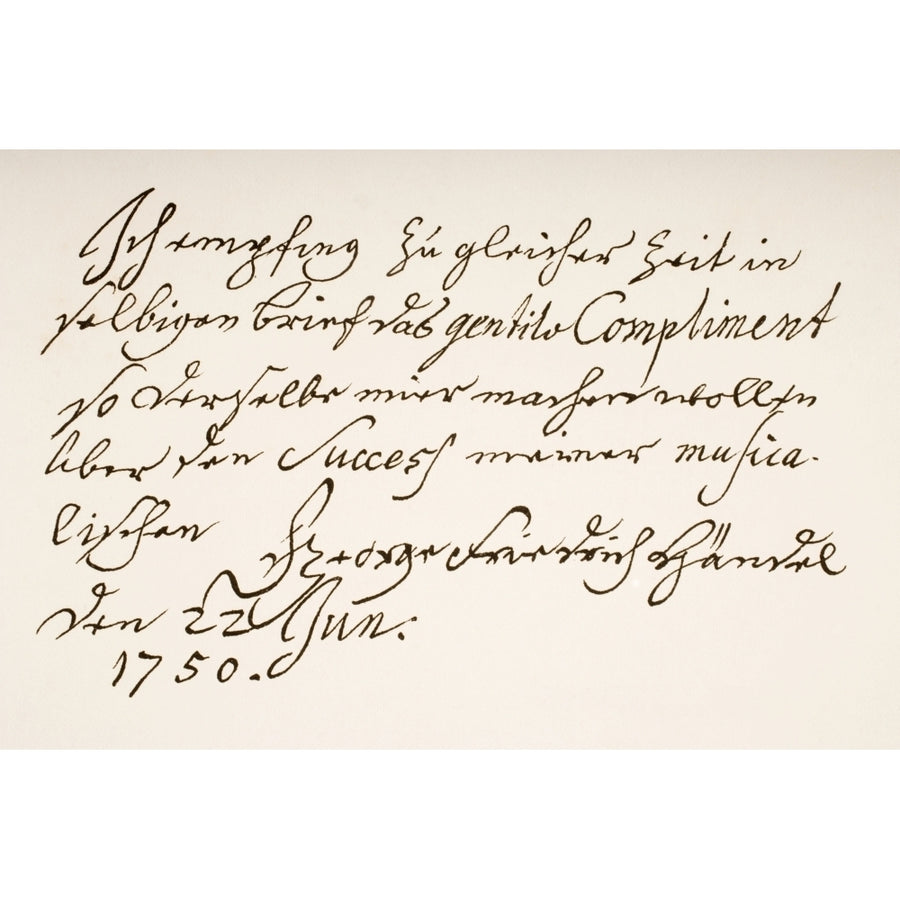 Ich empfing zu gleicher Zeit in
selbigen brief das gentile Compliment
so derselbe mier machen wollen
über den Success meiner musica-
lischen
George Friedrich Händel
den 22 Jun:
1750.